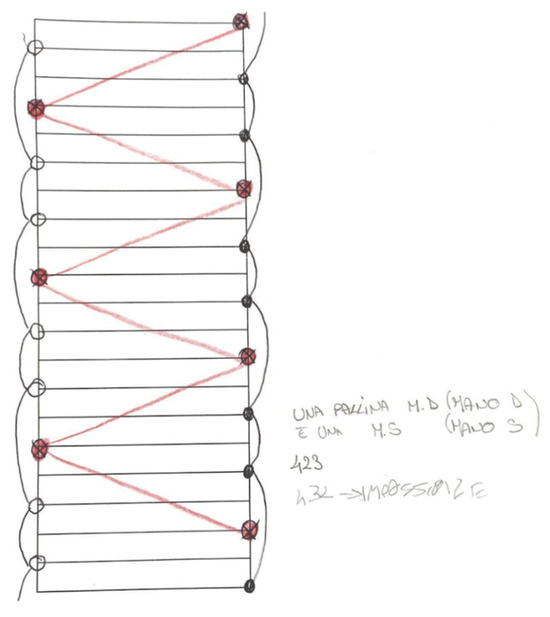 UNA PALLINA M.D (MANO D)
E UNA M.S (MANO S)
423
432 → IMPOSSIBILE